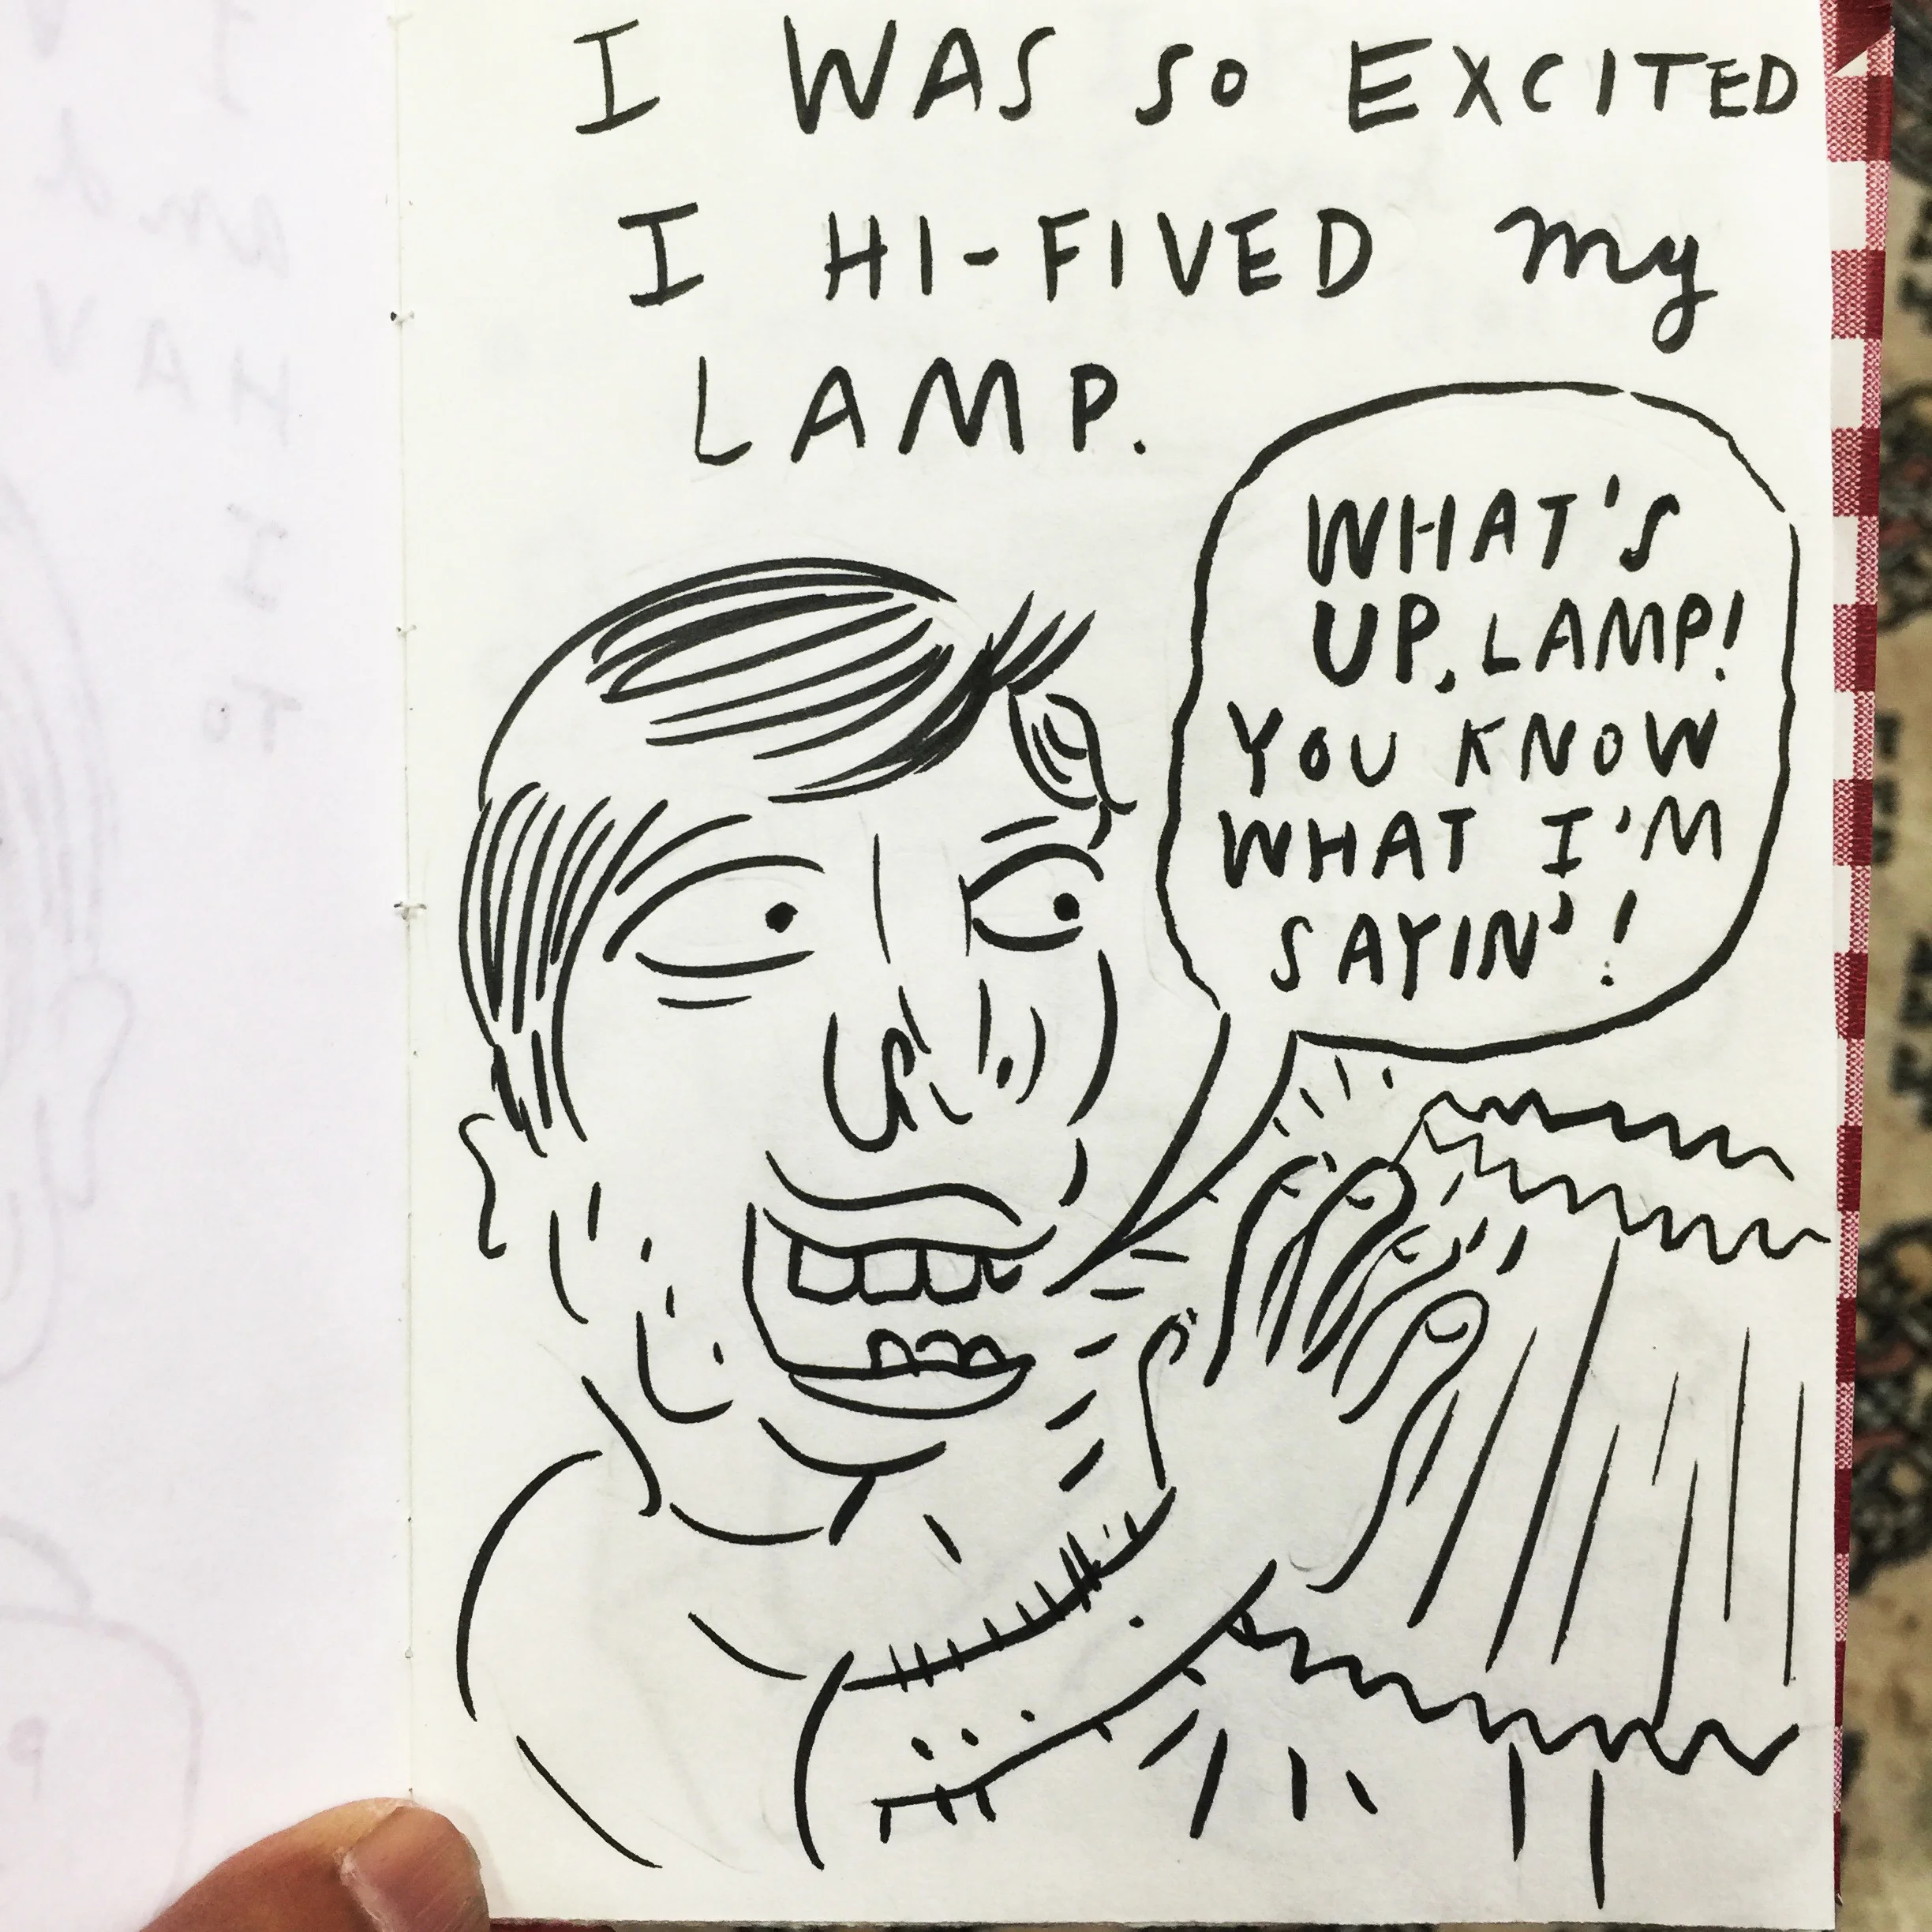 I WAS SO EXCITED
I HI-FIVED my
LAMP.
WHAT'S
UP, LAMP!
YOU KNOW
WHAT I'M
SAYIN'!